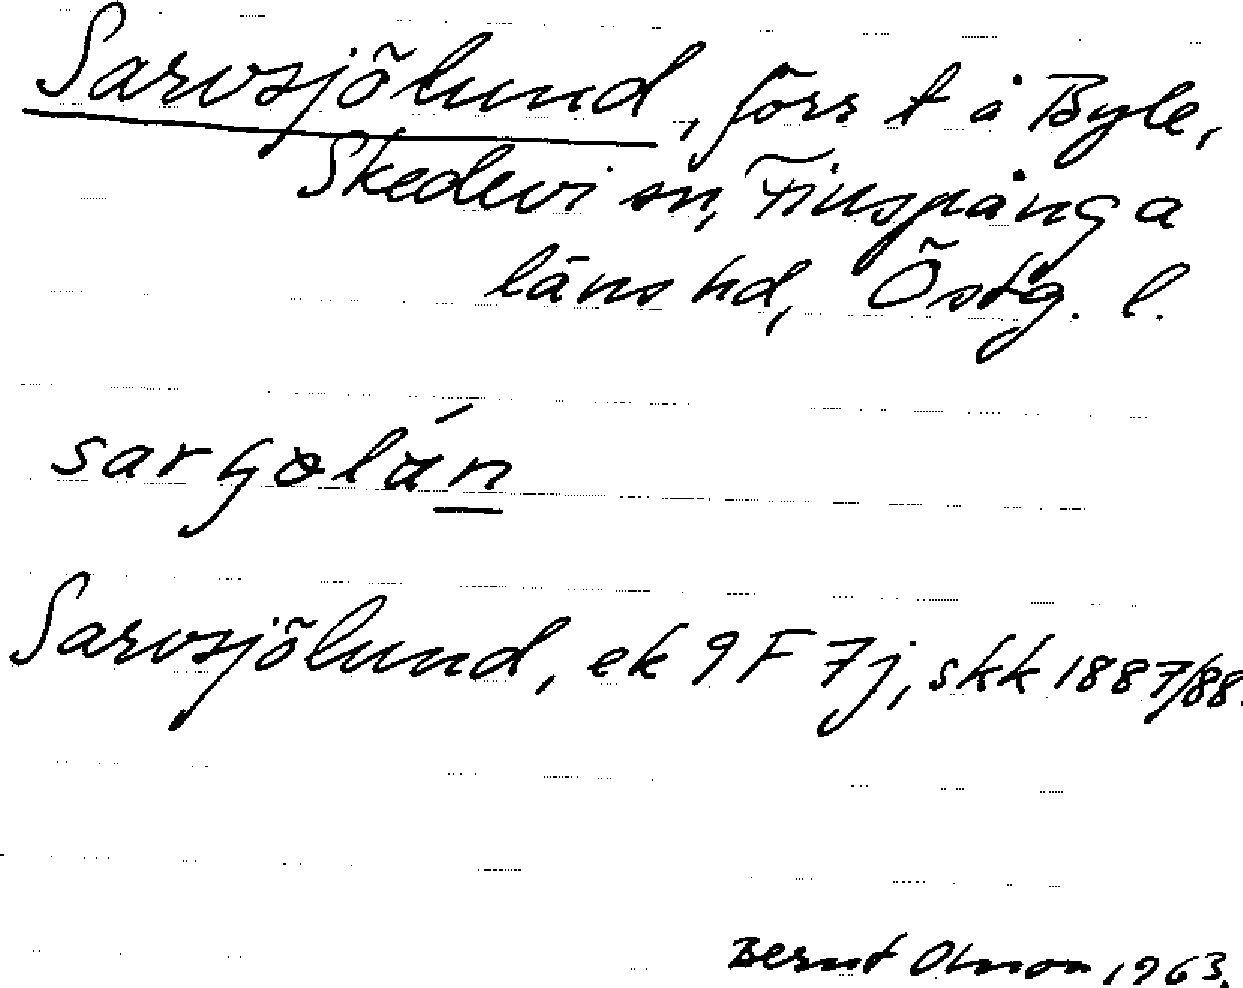 Sarvsjölund, förr t å Byle,
Skedevi sn, Finspånga
läns hd, Östg. l.
Sarvsjölund, ek 9F 7j, skk 1887/88.
Bernt Olsson 1963.